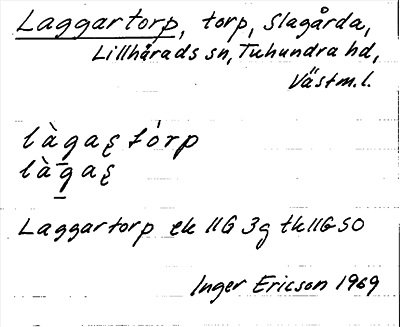 Laggartorp, torp, Slagårda,
Lillhårads sn, Tuhundra hd,
Västm.l.
làgaꞩ tórp
làgaꞩ
Laggartorp ek 11G 3g tk 11G SO
Inger Ericson 1969